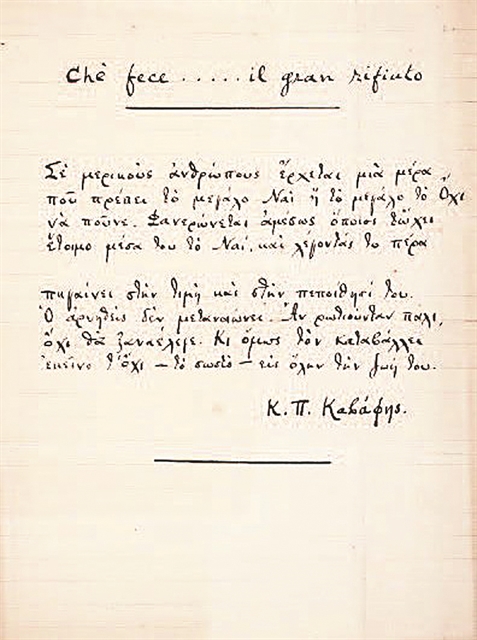 Chè fece ..... il gran rifiuto
Σὲ μερικοὺς ἀνθρώπους ἔρχεται μιὰ μέρα
ποῦ πρέπει τὸ μεγάλο Ναὶ ἢ τὸ μεγάλο τὸ Ὄχι
νὰ ποῦνε. Φανερώνεται ἀμέσως ὅποιος τὤχει
ἕτοιμο μέσα του τὸ Ναί, καὶ λέγοντάς το πέρα
πηγαίνει στὴν τιμὴ καὶ στὴν πεποίθησί του.
Ὁ ἀρνηθεὶς δὲν μετανοιώνει. Ἂν ρωτιοῦνταν πάλι,
ὄχι θὰ ξαναέλεγε. Κι ὅμως τὸν καταβάλλει
ἐκεῖνο τ' ὄχι — τὸ σωστὸ — εἰς ὅλην τὴν ζωή του.
Κ. Π. Καβάφης.